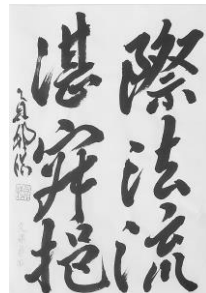 際法流
湛寂挹